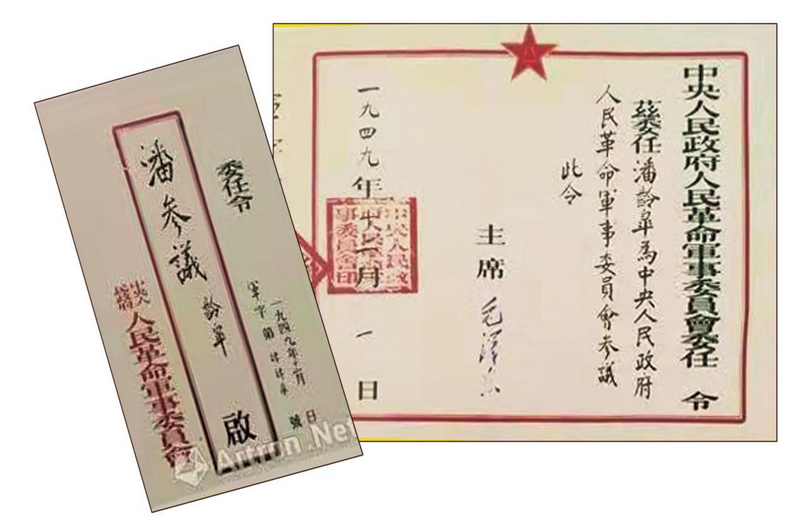 中央人民政府人民革命軍事委員會委任令
茲委任潘齡皐為中央人民政府
人民革命軍事委員會參議
此令
主席 毛澤东
一九四九年十二月一日
中央人民政
府人民革命軍
事委員會印
委任令
潘參議 齡皐 啟
一九四九年 月 日
軍字第 號
中央人民政府
人民革命軍事委員會
Artron.Net